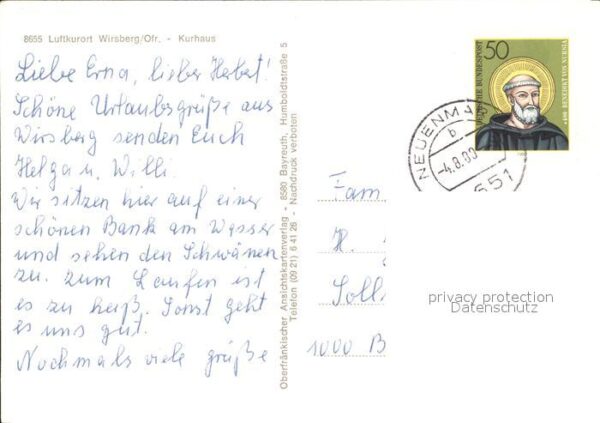 8655 Luftkurort Wirsberg/Ofr. - Kurhaus
Liebe Erna, lieber Herbert!
Schöne Urlaubsgrüße aus
Wirsberg senden Euch
Helga u. Willi.
Wir sitzen hier auf einer
schönen Bank am Wasser
und sehen den Schwänen
zu. Zum Laufen ist
es zu heiß. Sonst geht
es uns gut.
Nochmals viele grüße
Oberfränkischer Ansichtskartenverlag - 8580 Bayreuth, Humboldtstraße 5
Telefon (09 21) 6 41 26 - Nachdruck verboten
50
DEUTSCHE BUNDESPOST
BENEDIKT VON NURSIA
NEUENMA
b
-4.8.80
651
Fam
H.
Soll
1000 B
privacy protection
Datenschutz